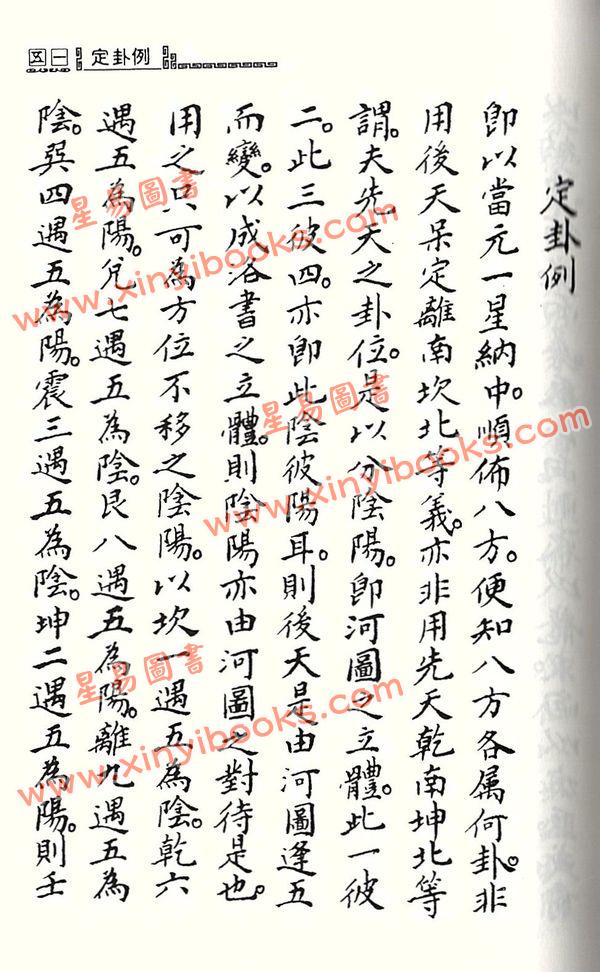 五一 定卦例
定卦例
即以當元一星納中。順佈八方。便知八方各属何卦。非
用後天呆定離南坎北等義。亦非用先天乾南坤北等
謂。夫先天之卦位。是以分陰陽。即河圖之立體。此一彼
二。此三彼四。亦即此陰彼陽耳。則後天是由河圖逢五
而變。以成洛書之立體。則陰陽亦由河圖之對待是也。
用之只可為方位不移之陰陽。以坎一遇五為陰。乾六
遇五為陽。兌七遇五為陰。艮八遇五為陽。離九遇五為
陰。巽四遇五為陽。震三遇五為陰。坤二遇五為陽。則壬
星易圖書
www.xinyibooks.com
星易圖書
www.xinyibooks.com
星易圖書
www.xinyibooks.com